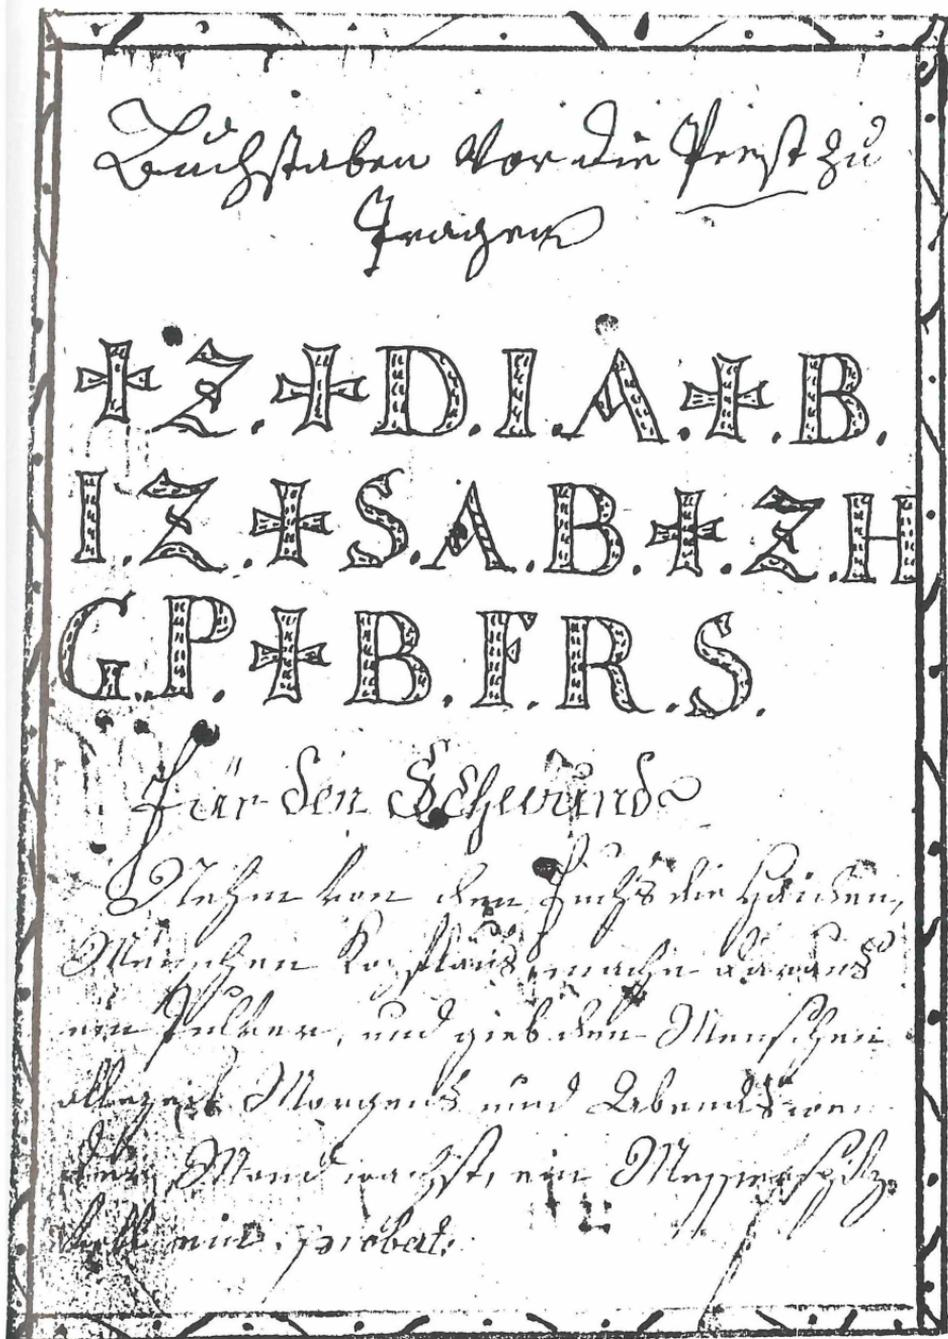 Buchstaben Vor die Pest zu
Tragen
✠ Z. ✠ D. I. A. ✠. B.
I. Z. ✠ S. A. B. ✠. Z. H
G. P. ✠ B. F. R. S.
Für den Schwund
Nehm von dem Fuchs die
Menschen mache daraus
ein Pulver, und gieb den Menschen
allezeit Morgens und Abends wen
der Mond wachst, ein Messerspitz
voll ein. probat.